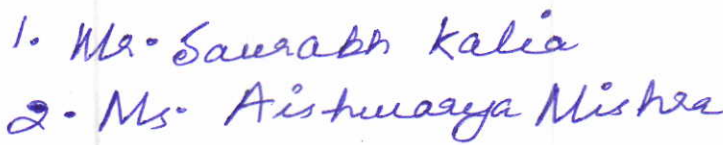 1. Mr. Saurabh Kalia
2. Ms. Aishwarya Mishra